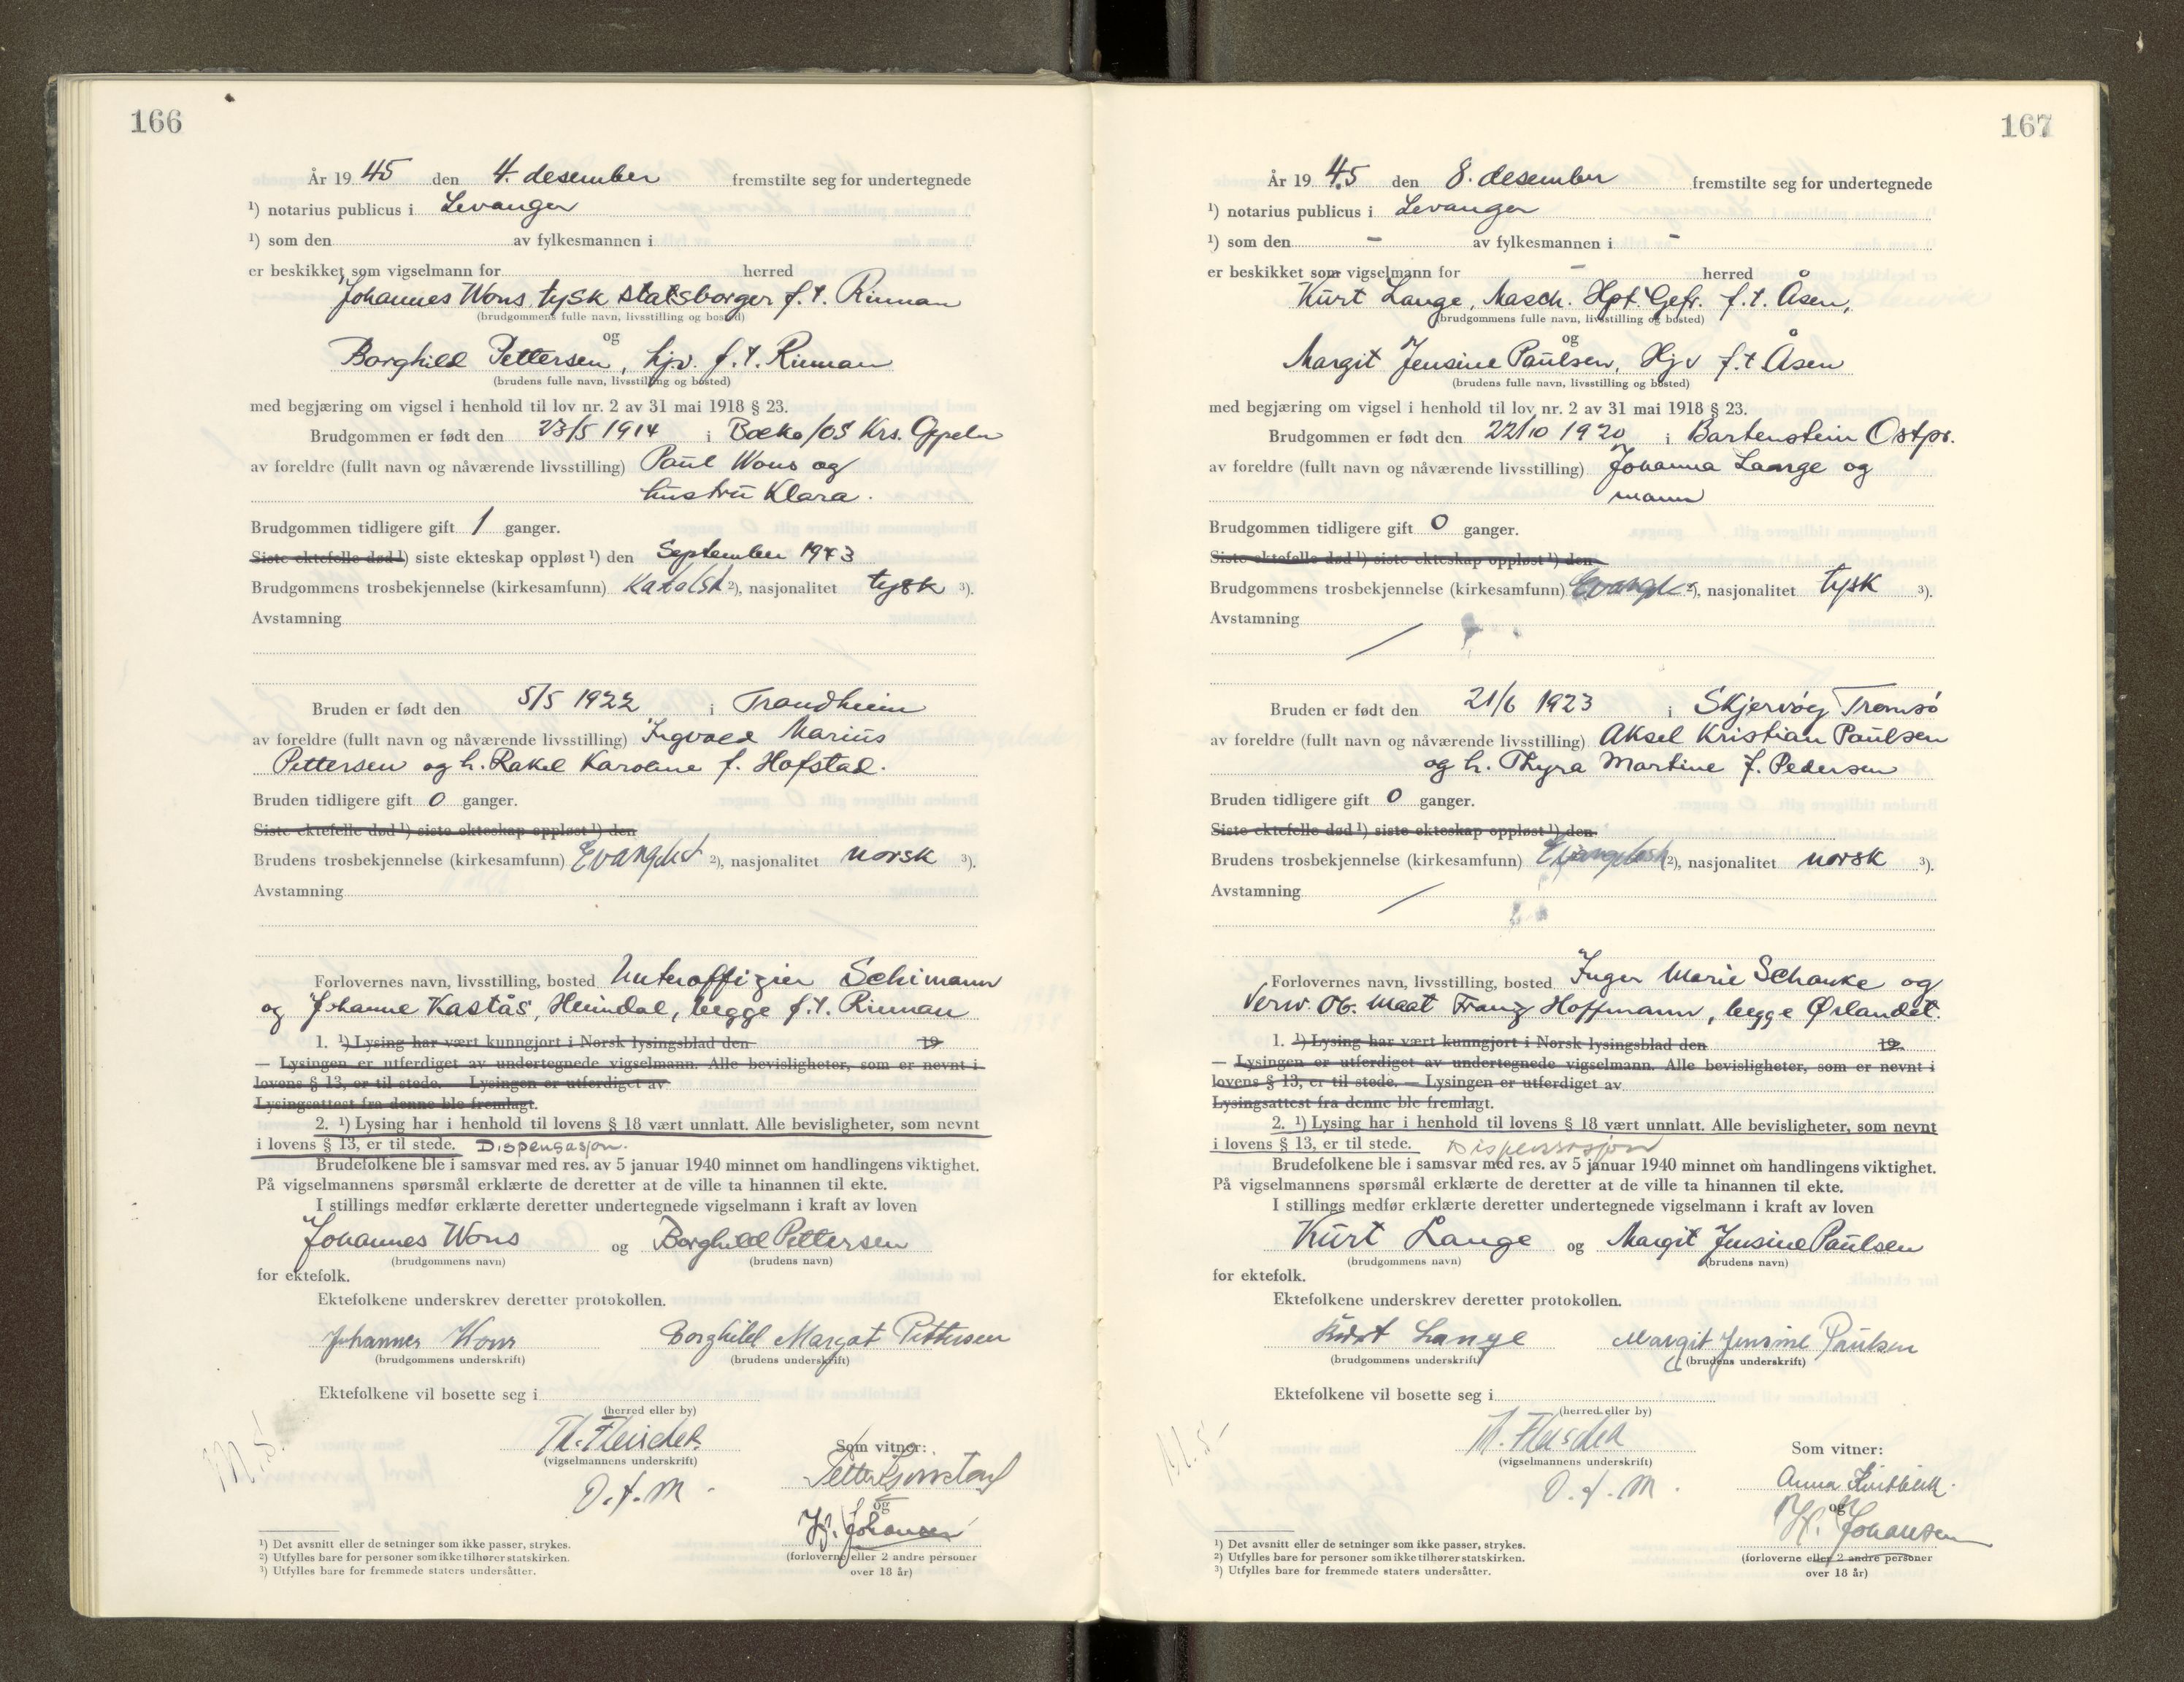 166
År 19 45 den 4. desember fremstilte seg for undertegnede
¹) notarius publicus i Levanger
¹) som den av fylkesmannen i
er beskikket som vigselmann for herred
Johannes Wons, tysk statsborger f.t. Rinnan
(brudgommens fulle navn, livsstilling og bosted)
og
Borghild Pettersen, hjv. f.t. Rinnan
(brudens fulle navn, livsstilling og bosted)
med begjæring om vigsel i henhold til lov nr. 2 av 31 mai 1918 § 23.
Brudgommen er født den 23/5 1914 i Boeko/OS Krs. Oppeln
av foreldre (fullt navn og nåværende livsstilling) Paul Wons og
hustru Klara.
Brudgommen tidligere gift 1 ganger.
Siste ektefelle død ¹) siste ekteskap oppløst ¹) den September 1943
Brudgommens trosbekjennelse (kirkesamfunn) Katolsk ²), nasjonalitet tysk ³).
Avstamning
Bruden er født den 5/5 1922 i Trondheim
av foreldre (fullt navn og nåværende livsstilling) Ingvald Marius
Pettersen og h. Rakel Karoline f. Hofstad.
Bruden tidligere gift 0 ganger.
Siste ektefelle død ¹) siste ekteskap oppløst ¹) den
Brudens trosbekjennelse (kirkesamfunn) ²), nasjonalitet norsk ³).
Avstamning
Forlovernes navn, livsstilling, bosted Unteroffizier Schimann
og Johanne Kastås, Heimdal, begge f.t. Rinnan
1. ¹) Lysing har vært kunngjort i Norsk lysingsblad den 19
— Lysingen er utferdiget av undertegnede vigselmann. Alle bevisligheter, som er nevnt i
lovens § 13, er til stede. — Lysingen er utferdiget av
Lysingsattest fra denne ble fremlagt.
2. ¹) Lysing har i henhold til lovens § 18 vært unnlatt. Alle bevisligheter, som nevnt
i lovens § 13, er til stede. Dispensasjon.
Brudefolkene ble i samsvar med res. av 5 januar 1940 minnet om handlingens viktighet.
På vigselmannens spørsmål erklærte de deretter at de ville ta hinannen til ekte.
I stillings medfør erklærte deretter undertegnede vigselmann i kraft av loven
Johannes Wons og Borghild Pettersen
(brudgommens navn) (brudens navn)
for ektefolk.
Ektefolkene underskrev deretter protokollen.
Johannes Wons Borghild Margot Pettersen
(brudgommens underskrift) (brudens underskrift)
Ektefolkene vil bosette seg i
(herred eller by)
Th. Fleischer
(vigselmannens underskrift)
D.f.m.
Som vitner:
og
H. Johansen
(forloverne eller 2 andre personer
over 18 år)
¹) Det avsnitt eller de setninger som ikke passer, strykes.
²) Utfylles bare for personer som ikke tilhører statskirken.
³) Utfylles bare for fremmede staters undersåtter.
167
År 19 45 den 8. desember fremstilte seg for undertegnede
¹) notarius publicus i Levanger
¹) som den - av fylkesmannen i -
er beskikket som vigselmann for - herred
Kurt Lange, Masch. Hpt. Gefr. f.t. Åsen,
(brudgommens fulle navn, livsstilling og bosted)
og
Margit Jensine Paulsen, Hjv f.t Åsen
(brudens fulle navn, livsstilling og bosted)
med begjæring om vigsel i henhold til lov nr. 2 av 31 mai 1918 § 23.
Brudgommen er født den 22/10 1920 i Bartenstein Ostpr.
av foreldre (fullt navn og nåværende livsstilling) Johanna Lange og
mann
Brudgommen tidligere gift 0 ganger.
Siste ektefelle død ¹) siste ekteskap oppløst ¹) den
Brudgommens trosbekjennelse (kirkesamfunn) ²), nasjonalitet tysk ³).
Avstamning
Bruden er født den 21/6 1923 i Skjervøy Tromsø
av foreldre (fullt navn og nåværende livsstilling) Aksel Kristian Paulsen
og h. Thyra Martine f. Pedersen
Bruden tidligere gift 0 ganger.
Siste ektefelle død ¹) siste ekteskap oppløst ¹) den
Brudens trosbekjennelse (kirkesamfunn) Evangelisk ²), nasjonalitet norsk ³).
Avstamning
Forlovernes navn, livsstilling, bosted Inger Marie Schanke og
Verw. Ob. Maat Franz Hoffmann, begge Ørlandet.
1. ¹) Lysing har vært kunngjort i Norsk lysingsblad den 19
— Lysingen er utferdiget av undertegnede vigselmann. Alle bevisligheter, som er nevnt i
lovens § 13, er til stede. — Lysingen er utferdiget av
Lysingsattest fra denne ble fremlagt.
2. ¹) Lysing har i henhold til lovens § 18 vært unnlatt. Alle bevisligheter, som nevnt
i lovens § 13, er til stede. Dispensasjon
Brudefolkene ble i samsvar med res. av 5 januar 1940 minnet om handlingens viktighet.
På vigselmannens spørsmål erklærte de deretter at de ville ta hinannen til ekte.
I stillings medfør erklærte deretter undertegnede vigselmann i kraft av loven
Kurt Lange og Margit Jensine Paulsen
(brudgommens navn) (brudens navn)
for ektefolk.
Ektefolkene underskrev deretter protokollen.
Kurt Lange Margit Jensine Paulsen
(brudgommens underskrift) (brudens underskrift)
Ektefolkene vil bosette seg i
(herred eller by)
Th. Fleischer
(vigselmannens underskrift)
D.f.m.
Som vitner:
Anna
og
H. Johansen
(forloverne eller 2 andre personer
over 18 år)
¹) Det avsnitt eller de setninger som ikke passer, strykes.
²) Utfylles bare for personer som ikke tilhører statskirken.
³) Utfylles bare for fremmede staters undersåtter.